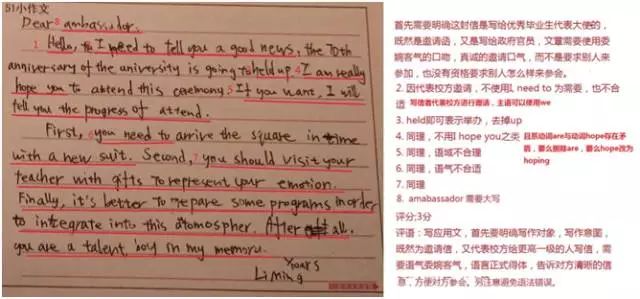 51小作文
Dear 8 ambassador.
1 Hello, to I need to tell you a good news, the 70th
anniversary of the university is going to held up. 4 I am really
hope you to attend this ceremony. 5 If you want, I will
tell you the progress of attend.
First, 6 you need to arrive the square in time
with a new suit. Second, 7 you should visit your
teacher with gifts to represent your emotion.
Finally, it's better to prepare some programs in order
to integrate into this atomospher. After all,
you are a talent boy in my memory.
Yours
Liming
首先需要明确这封信是写给优秀毕业生代表大使的，
既然是邀请函，又是写给政府官员，文章需要使用委
婉客气的口吻，真诚的邀请口气，而不是要求别人来
参加，也没有资格要求别人怎么样来参会。
2. 因代表校方邀请，不使用I, need to 为需要，也不合
适 写信者代表校方进行邀请，主语可以使用we
3. held即可表示举办，去掉up
4. 同理，不用I hope you之类 且原动词are与动词hope存在矛
盾，要么删除are，要么hope改为
hoping
5. 同理，语域不合理
6. 同理，语气不合适
7. 同理
8. amabassador 需要大写
评分:3分
评语：写应用文，首先要明确写作对象，写作意图，
既然为邀请信，又代表校方给更高一级的人写信，需
要语气委婉客气，语言正式得体，告诉对方清晰的信
息，方便对方参会。另注意避免语法错误。